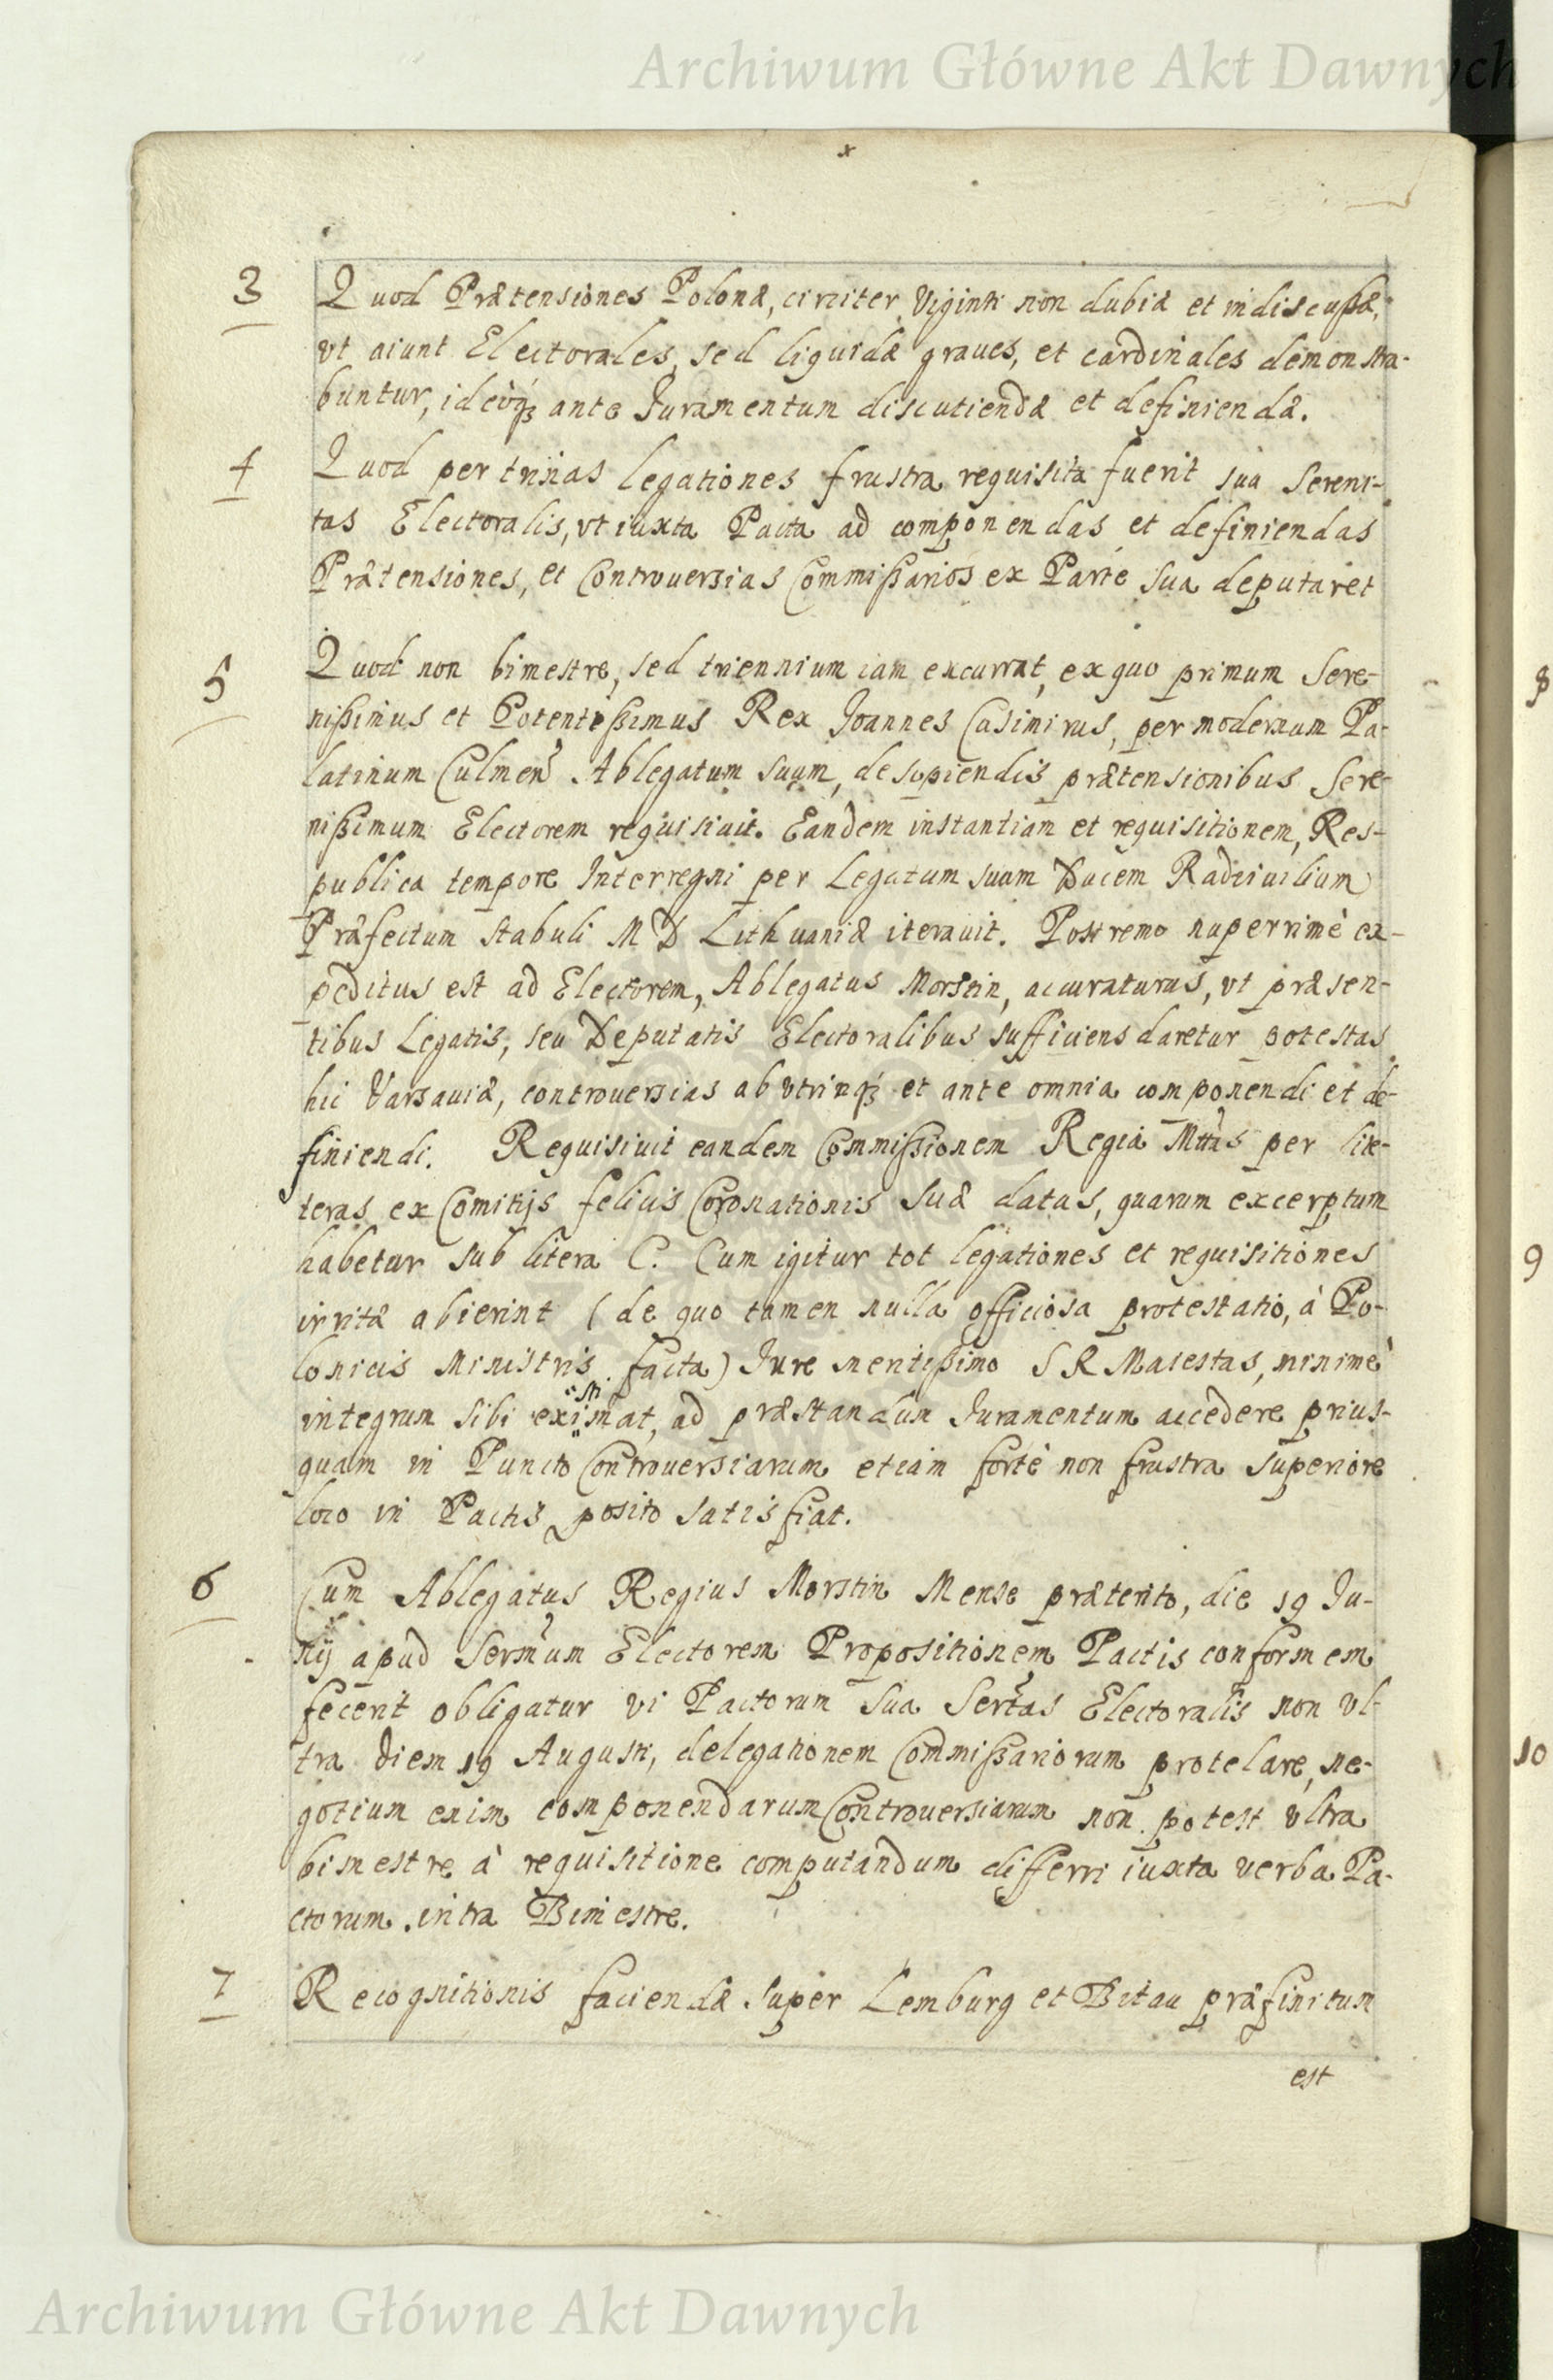 Archiwum Główne Akt Dawnych
3 Quod Prætensiones Polonæ, circiter Viginti non dubiæ et indiscussæ,
vt aiunt Electorales, sed liquidæ graues, et cardinales demonstra-
buntur, ideoq́ ante Iuramentum discutiendæ et definiendæ.
4 Quod per trinas legationes frustra requisita fuerit sua Sereni-
tas Electoralis, vt iuxta Pacta ad componendas et definiendas
Prætensiones, et Controuersias Commissarios ex Parte sua deputaret
5 Quod non bimestre, sed triennium iam excurrat, ex quo primum Sere-
nissimus et Potentissimus Rex Joannes Casimirus, per modernum Pa-
latinum Culmen̄ Ablegatum suum, de sopiendis prætensionibus Sere-
nissimum Electorem requisiuit. Eandem instantiam et requisitionem, Res-
publica tempore Interregni per Legatum suum Ducem Radziuilium
Præfectum stabuli M D Lithuaniæ iterauit. Postremo nuperrimè ex-
peditus est ad Electorem, Ablegatus Morstin, accuraturus, vt præsen-
tibus Legatis, seu Deputatis Electoralibus sufficiens daretur potestas
hic Varsauiæ, controuersias ab vtrinq́ et ante omnia componendi et de-
finiendi. Requisiuit eandem Commissionem Regia Mttas per lit-
teras ex Comitijs felicis Coronationis suæ datas, quarum excerptum
habetur sub litera C. Cum igitur tot legationes et requisitiones
irritæ abierint (de quo tamen nulla officiosa protestatio, à Po-
lonicis Ministris facta) Iure meritissimo S R Maiestas, minimè
integrum sibi existimat, ad præstandum Iuramentum accedere prius-
quam in Puncto Controuersiarum etiam fortè non frustra superiore
loco in Pactis posito satisfiat.
6 Cum Ablegatus Regius Morstin Mense præterito, die 19 Iu-
nij apud Sermum Electorem Propositionem Pactis conformem
fecerit obligatur vi Pactorum Sua Sertas Electoralis non vl-
tra diem 19 Augusti, delegationem Commissariorum protelare, ne-
gotium enim componendarum Controuersiarum non potest vltra
bimestre à requisitione computandum differri iuxta verba Pa-
ctorum intra Bimestre.
7 Recognitionis faciendæ super Lemburg et Bitau præfinitum
est
8
9
10
Archiwum Główne Akt Dawnych